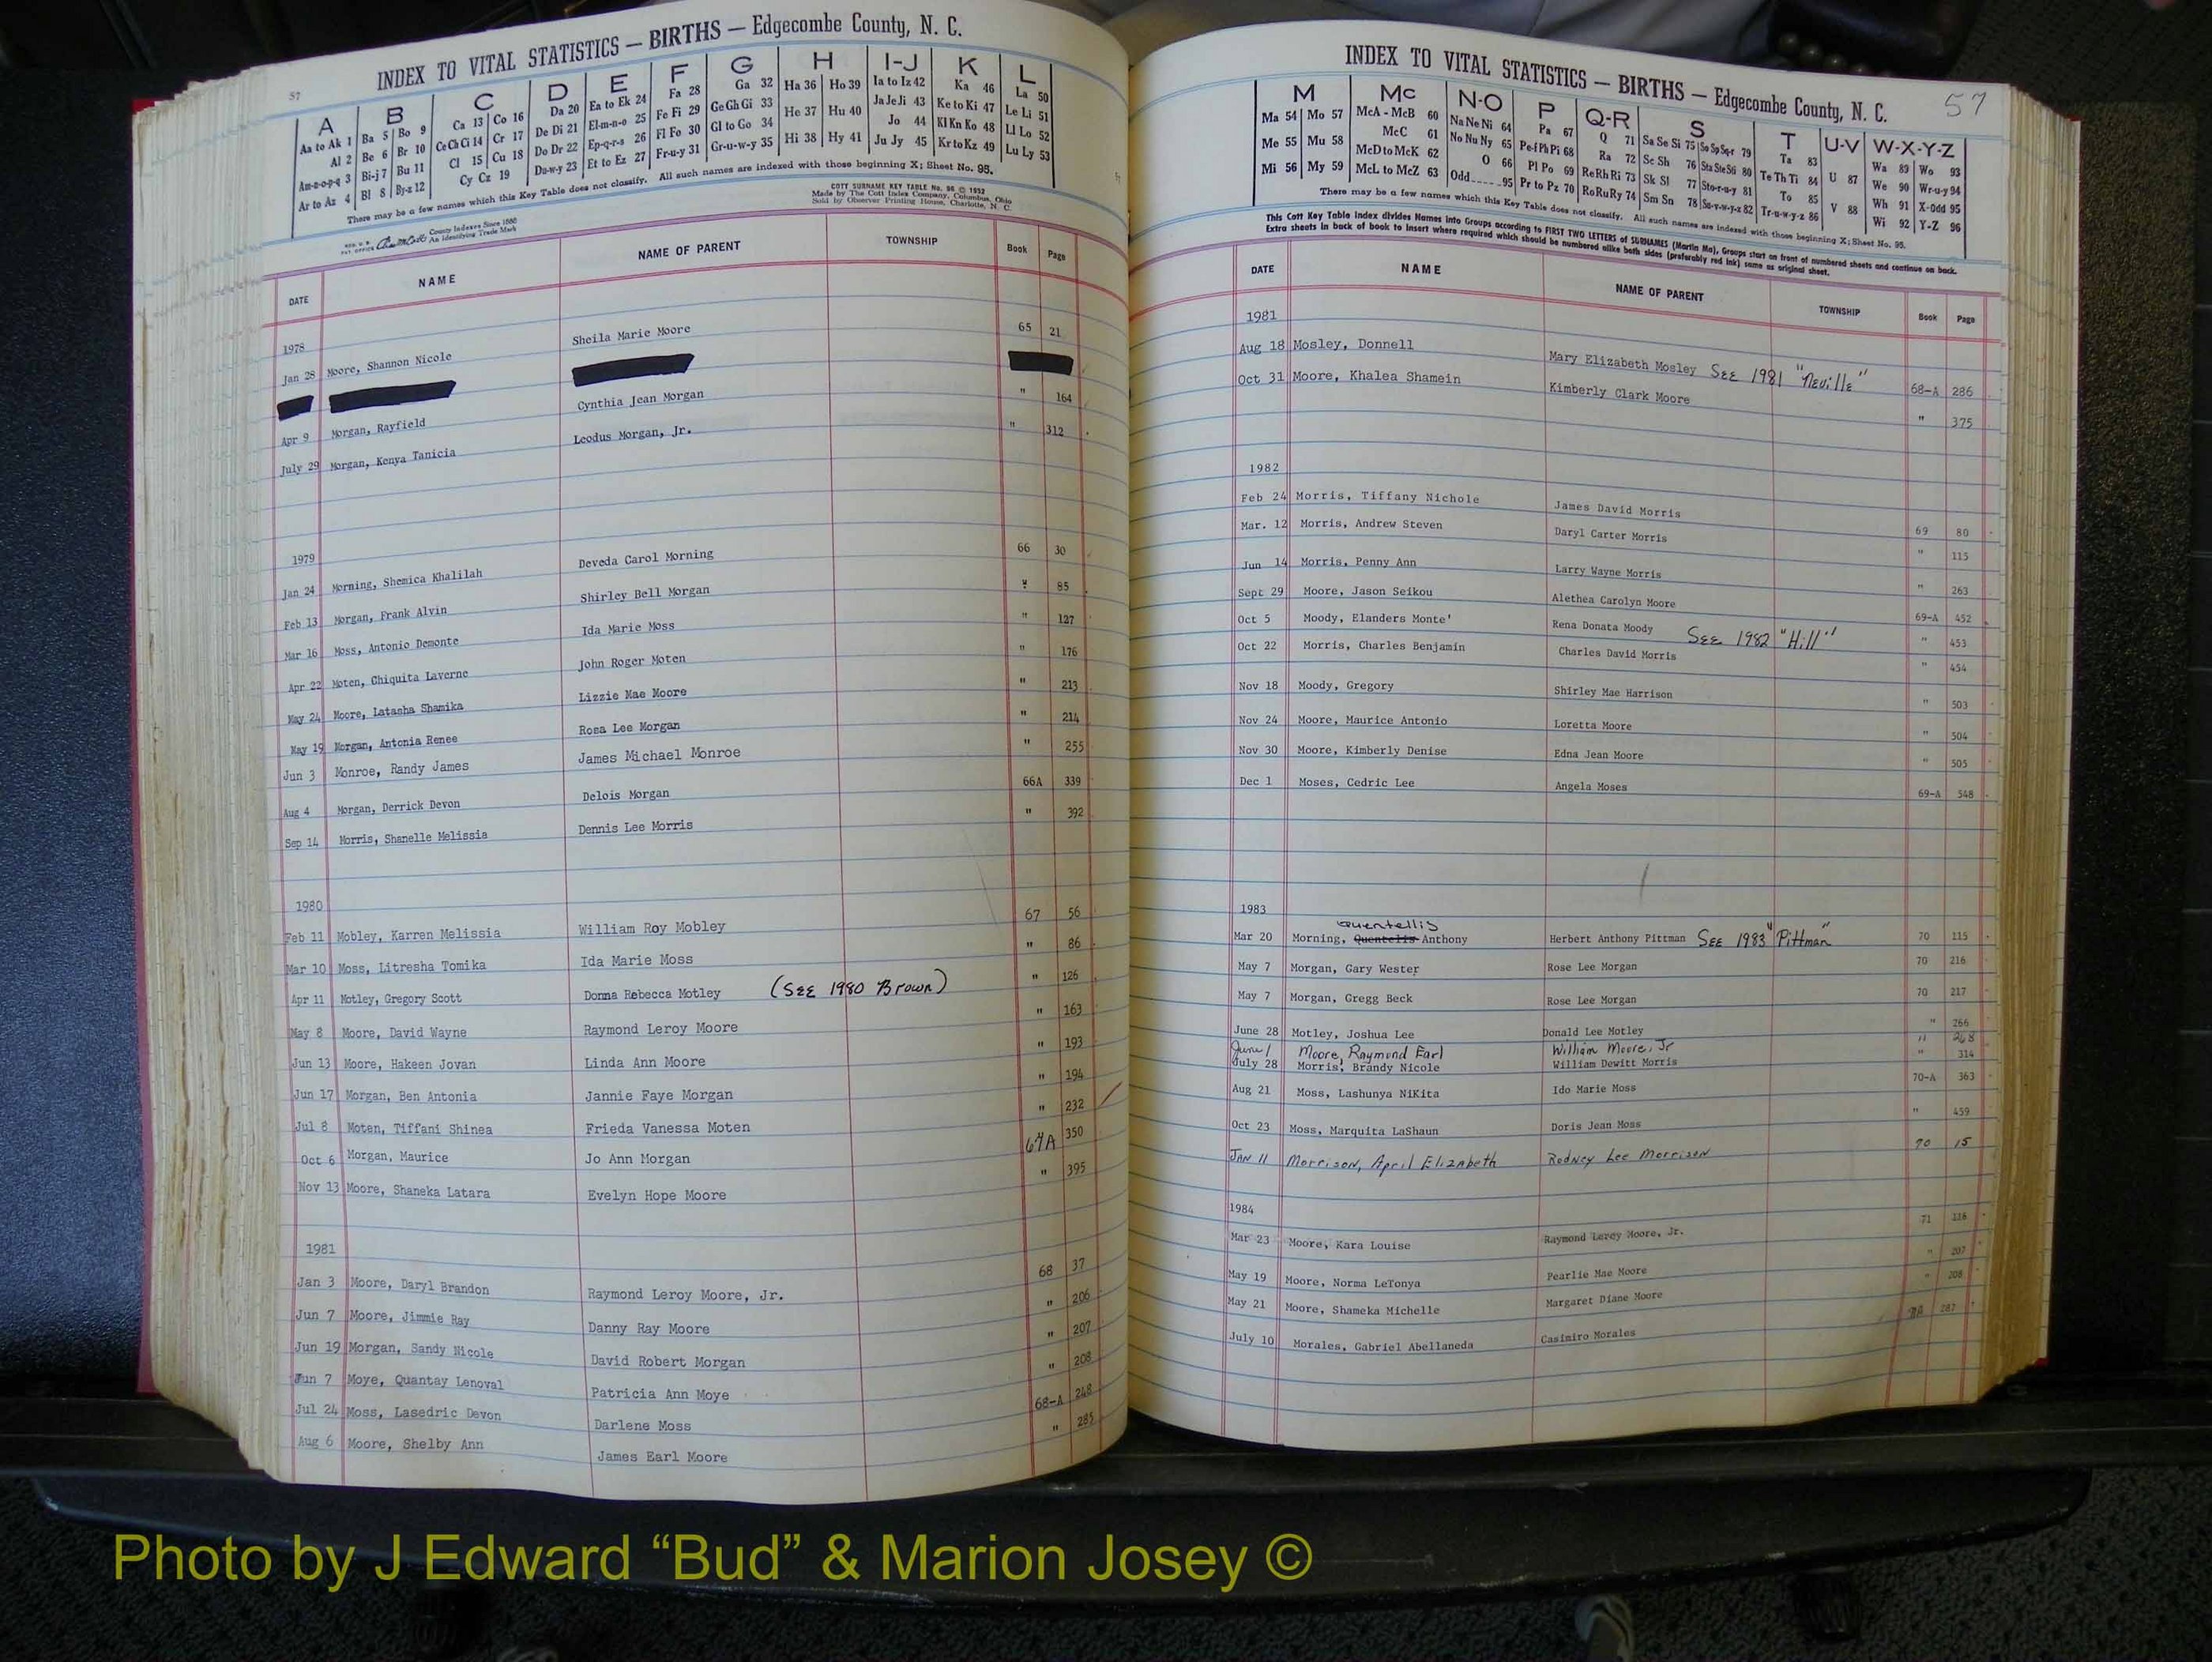 INDEX TO VITAL STATISTICS — BIRTHS — Edgecombe County, N. C.
57
A B C D E F G H I-J K L
Aa to Ak 1 Ba 5 Bo 9 Ca 13 Co 16 Da 20 Ea to Ek 24 Fa 28 Ga 32 Ha 36 Ho 39 Ia to Iz 42 Ka 46 La 50
Al 2 Be 6 Br 10 Ce Ch Ci 14 Cr 17 De Di 21 El-m-n-o 25 Fe Fi 29 Ge Gh Gi 33 He 37 Hu 40 Ja Je Ji 43 Ke to Ki 47 Le Li 51
Am-n-o-p-q 3 Bi-j 7 Bu 11 Cl 15 Cu 18 Do Dr 22 Ep-q-r-s 26 Fl Fo 30 Gl to Go 34 Hi 38 Hy 41 Jo 44 Kl Kn Ko 48 Ll Lo 52
Ar to Az 4 Bl 8 By-z 12 Cy Cz 19 Du-w-y 23 Et to Ez 27 Fr-u-y 31 Gr-u-w-y 35 Ju Jy 45 Kr to Kz 49 Lu Ly 53
There may be a few names which this Key Table does not classify. All such names are indexed with those beginning X; Sheet No. 95.
County Indexes Since 1888
An Identifying Trade Mark
COTT SURNAME KEY TABLE No. 96 © 1952
Made by The Cott Index Company, Columbus, Ohio
Sold by Observer Printing House, Charlotte, N. C.
DATE NAME NAME OF PARENT TOWNSHIP Book Page
1978
Jan 28 Moore, Shannon Nicole Sheila Marie Moore 65 21
Apr 9 Morgan, Rayfield Cynthia Jean Morgan " 164
July 29 Morgan, Kenya Tanicia Leodus Morgan, Jr. " 312
1979
Jan 24 Morning, Shemica Khalilah Deveda Carol Morning 66 30
Feb 13 Morgan, Frank Alvin Shirley Bell Morgan " 85
Mar 16 Moss, Antonio Demonte Ida Marie Moss " 127
Apr 22 Moten, Chiquita Laverne John Roger Moten " 176
May 24 Moore, Latasha Shamika Lizzie Mae Moore " 213
May 19 Morgan, Antonia Renee Rosa Lee Morgan " 214
Jun 3 Monroe, Randy James James Michael Monroe " 255
Aug 4 Morgan, Derrick Devon Delois Morgan 66A 339
Sep 14 Morris, Shanelle Melissia Dennis Lee Morris " 392
1980
Feb 11 Mobley, Karren Melissia William Roy Mobley 67 56
Mar 10 Moss, Litresha Tomika Ida Marie Moss " 86
Apr 11 Motley, Gregory Scott Donna Rebecca Motley (SEE 1980 Brown) " 126
May 8 Moore, David Wayne Raymond Leroy Moore " 163
Jun 13 Moore, Hakeen Jovan Linda Ann Moore " 193
Jun 17 Morgan, Ben Antonia Jannie Faye Morgan " 194
Jul 8 Moten, Tiffani Shinea Frieda Vanessa Moten " 232
Oct 6 Morgan, Maurice Jo Ann Morgan 67A 350
Nov 13 Moore, Shaneka Latara Evelyn Hope Moore " 395
1981
Jan 3 Moore, Daryl Brandon Raymond Leroy Moore, Jr. 68 37
Jun 7 Moore, Jimmie Ray Danny Ray Moore " 206
Jun 19 Morgan, Sandy Nicole David Robert Morgan " 207
Jun 7 Moye, Quantay Lenoval Patricia Ann Moye " 208
Jul 24 Moss, Lasedric Devon Darlene Moss 68-A 248
Aug 6 Moore, Shelby Ann James Earl Moore " 285
INDEX TO VITAL STATISTICS — BIRTHS — Edgecombe County, N. C. 57
M Mc N-O P Q-R S T U-V W-X-Y-Z
Ma 54 Mo 57 McA - McB 60 Na Ne Ni 64 Pa 67 Q 71 Sa Se Si 75 So Sp Sq-r 79 Ta 83 U 87 Wa 89 Wo 93
Me 55 Mu 58 McC 61 No Nu Ny 65 Pe-f Ph Pi 68 Ra 72 Sc Sh 76 Sta Ste Sti 80 Te Th Ti 84 V 88 We 90 Wr-u-y 94
Mi 56 My 59 McD to McK 62 O 66 Pl Po 69 Re Rh Ri 73 Sk Sl 77 Sto-r-u-y 81 To 85 Wh 91 X-Odd 95
McL to McZ 63 Odd 95 Pr to Pz 70 Ro Ru Ry 74 Sm Sn 78 Su-v-w-y-z 82 Tr-u-w-y-z 86 Wi 92 Y-Z 96
There may be a few names which this Key Table does not classify. All such names are indexed with those beginning X; Sheet No. 95.
This Cott Key Table Index divides Names into Groups according to FIRST TWO LETTERS of SURNAMES (Martin Ma), Groups start on front of numbered sheets and continue on back.
Extra sheets in back of book to insert where required which should be numbered alike both sides (preferably red ink) same as original sheet.
DATE NAME NAME OF PARENT TOWNSHIP Book Page
1981
Aug 18 Mosley, Donnell Mary Elizabeth Mosley SEE 1981 "Neville" 68-A 286
Oct 31 Moore, Khalea Shamein Kimberly Clark Moore " 375
1982
Feb 24 Morris, Tiffany Nichole James David Morris 69 80
Mar. 12 Morris, Andrew Steven Daryl Carter Morris " 115
Jun 14 Morris, Penny Ann Larry Wayne Morris " 263
Sept 29 Moore, Jason Seikou Alethea Carolyn Moore 69-A 452
Oct 5 Moody, Elanders Monte' Rena Donata Moody SEE 1982 "Hill" " 453
Oct 22 Morris, Charles Benjamin Charles David Morris " 454
Nov 18 Moody, Gregory Shirley Mae Harrison " 503
Nov 24 Moore, Maurice Antonio Loretta Moore " 504
Nov 30 Moore, Kimberly Denise Edna Jean Moore " 505
Dec 1 Moses, Cedric Lee Angela Moses 69-A 548
1983
Quentellis
Mar 20 Morning, Quentelis Anthony Herbert Anthony Pittman SEE 1983 "Pittman" 70 115
May 7 Morgan, Gary Wester Rose Lee Morgan 70 216
May 7 Morgan, Gregg Beck Rose Lee Morgan 70 217
June 28 Motley, Joshua Lee Donald Lee Motley " 266
June 1 Moore, Raymond Earl William Moore, Jr " 268
July 28 Morris, Brandy Nicole William Dewitt Morris " 314
Aug 21 Moss, Lashunya NiKita Ido Marie Moss 70-A 363
Oct 23 Moss, Marquita LaShaun Doris Jean Moss " 459
JAN 11 Morrison, April Elizabeth Rodney Lee Morrison 70 15
1984
Mar 23 Moore, Kara Louise Raymond Leroy Moore, Jr. 71
May 19 Moore, Norma LeTonya Pearlie Mae Moore " 207
May 21 Moore, Shameka Michelle Margaret Diane Moore " 208
July 10 Morales, Gabriel Abellaneda Casimiro Morales 287
Photo by J Edward “Bud” & Marion Josey ©